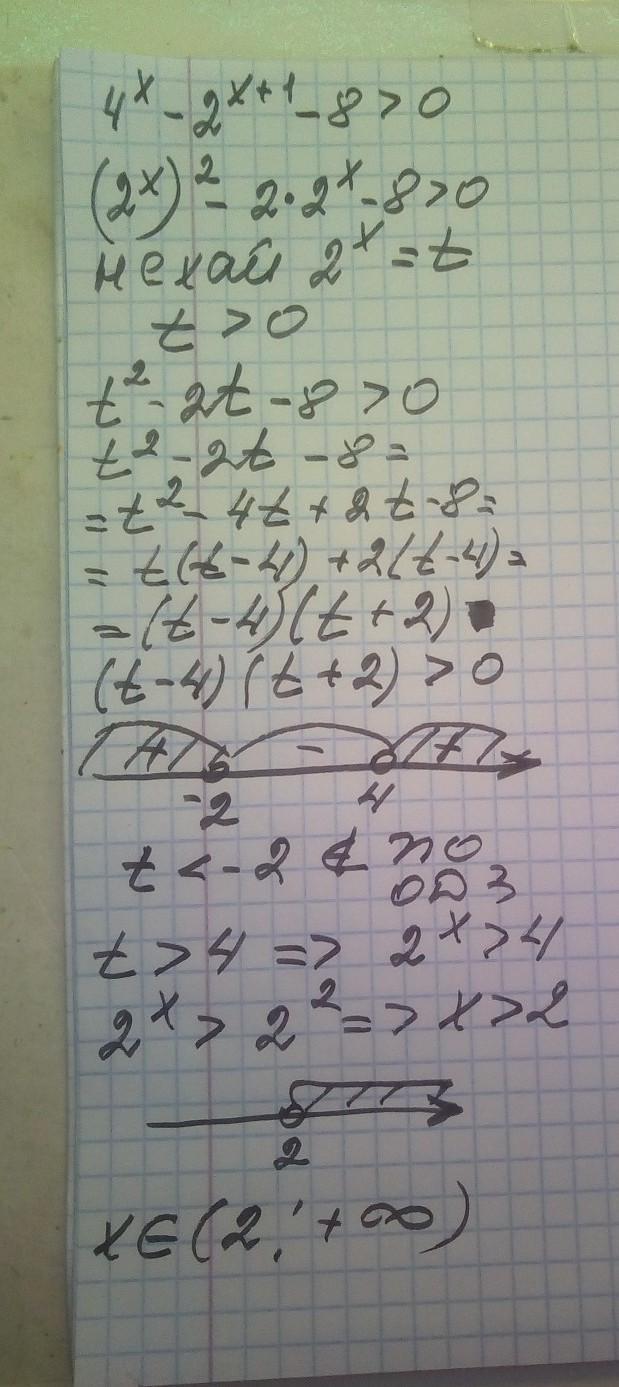 4^x - 2^{x+1} - 8 > 0
(2^x)^2 - 2·2^x - 8 > 0
нехай 2^x = t
t > 0
t^2 - 2t - 8 > 0
t^2 - 2t - 8 =
= t^2 - 4t + 2t - 8 =
= t(t-4) + 2(t-4) =
= (t-4)(t+2)
(t-4)(t+2) > 0
+ - +
-2 4
t < -2 ∉ по
ОДЗ
t > 4 => 2^x > 4
2^x > 2^2 => x > 2
2
x ∈ (2; +∞)